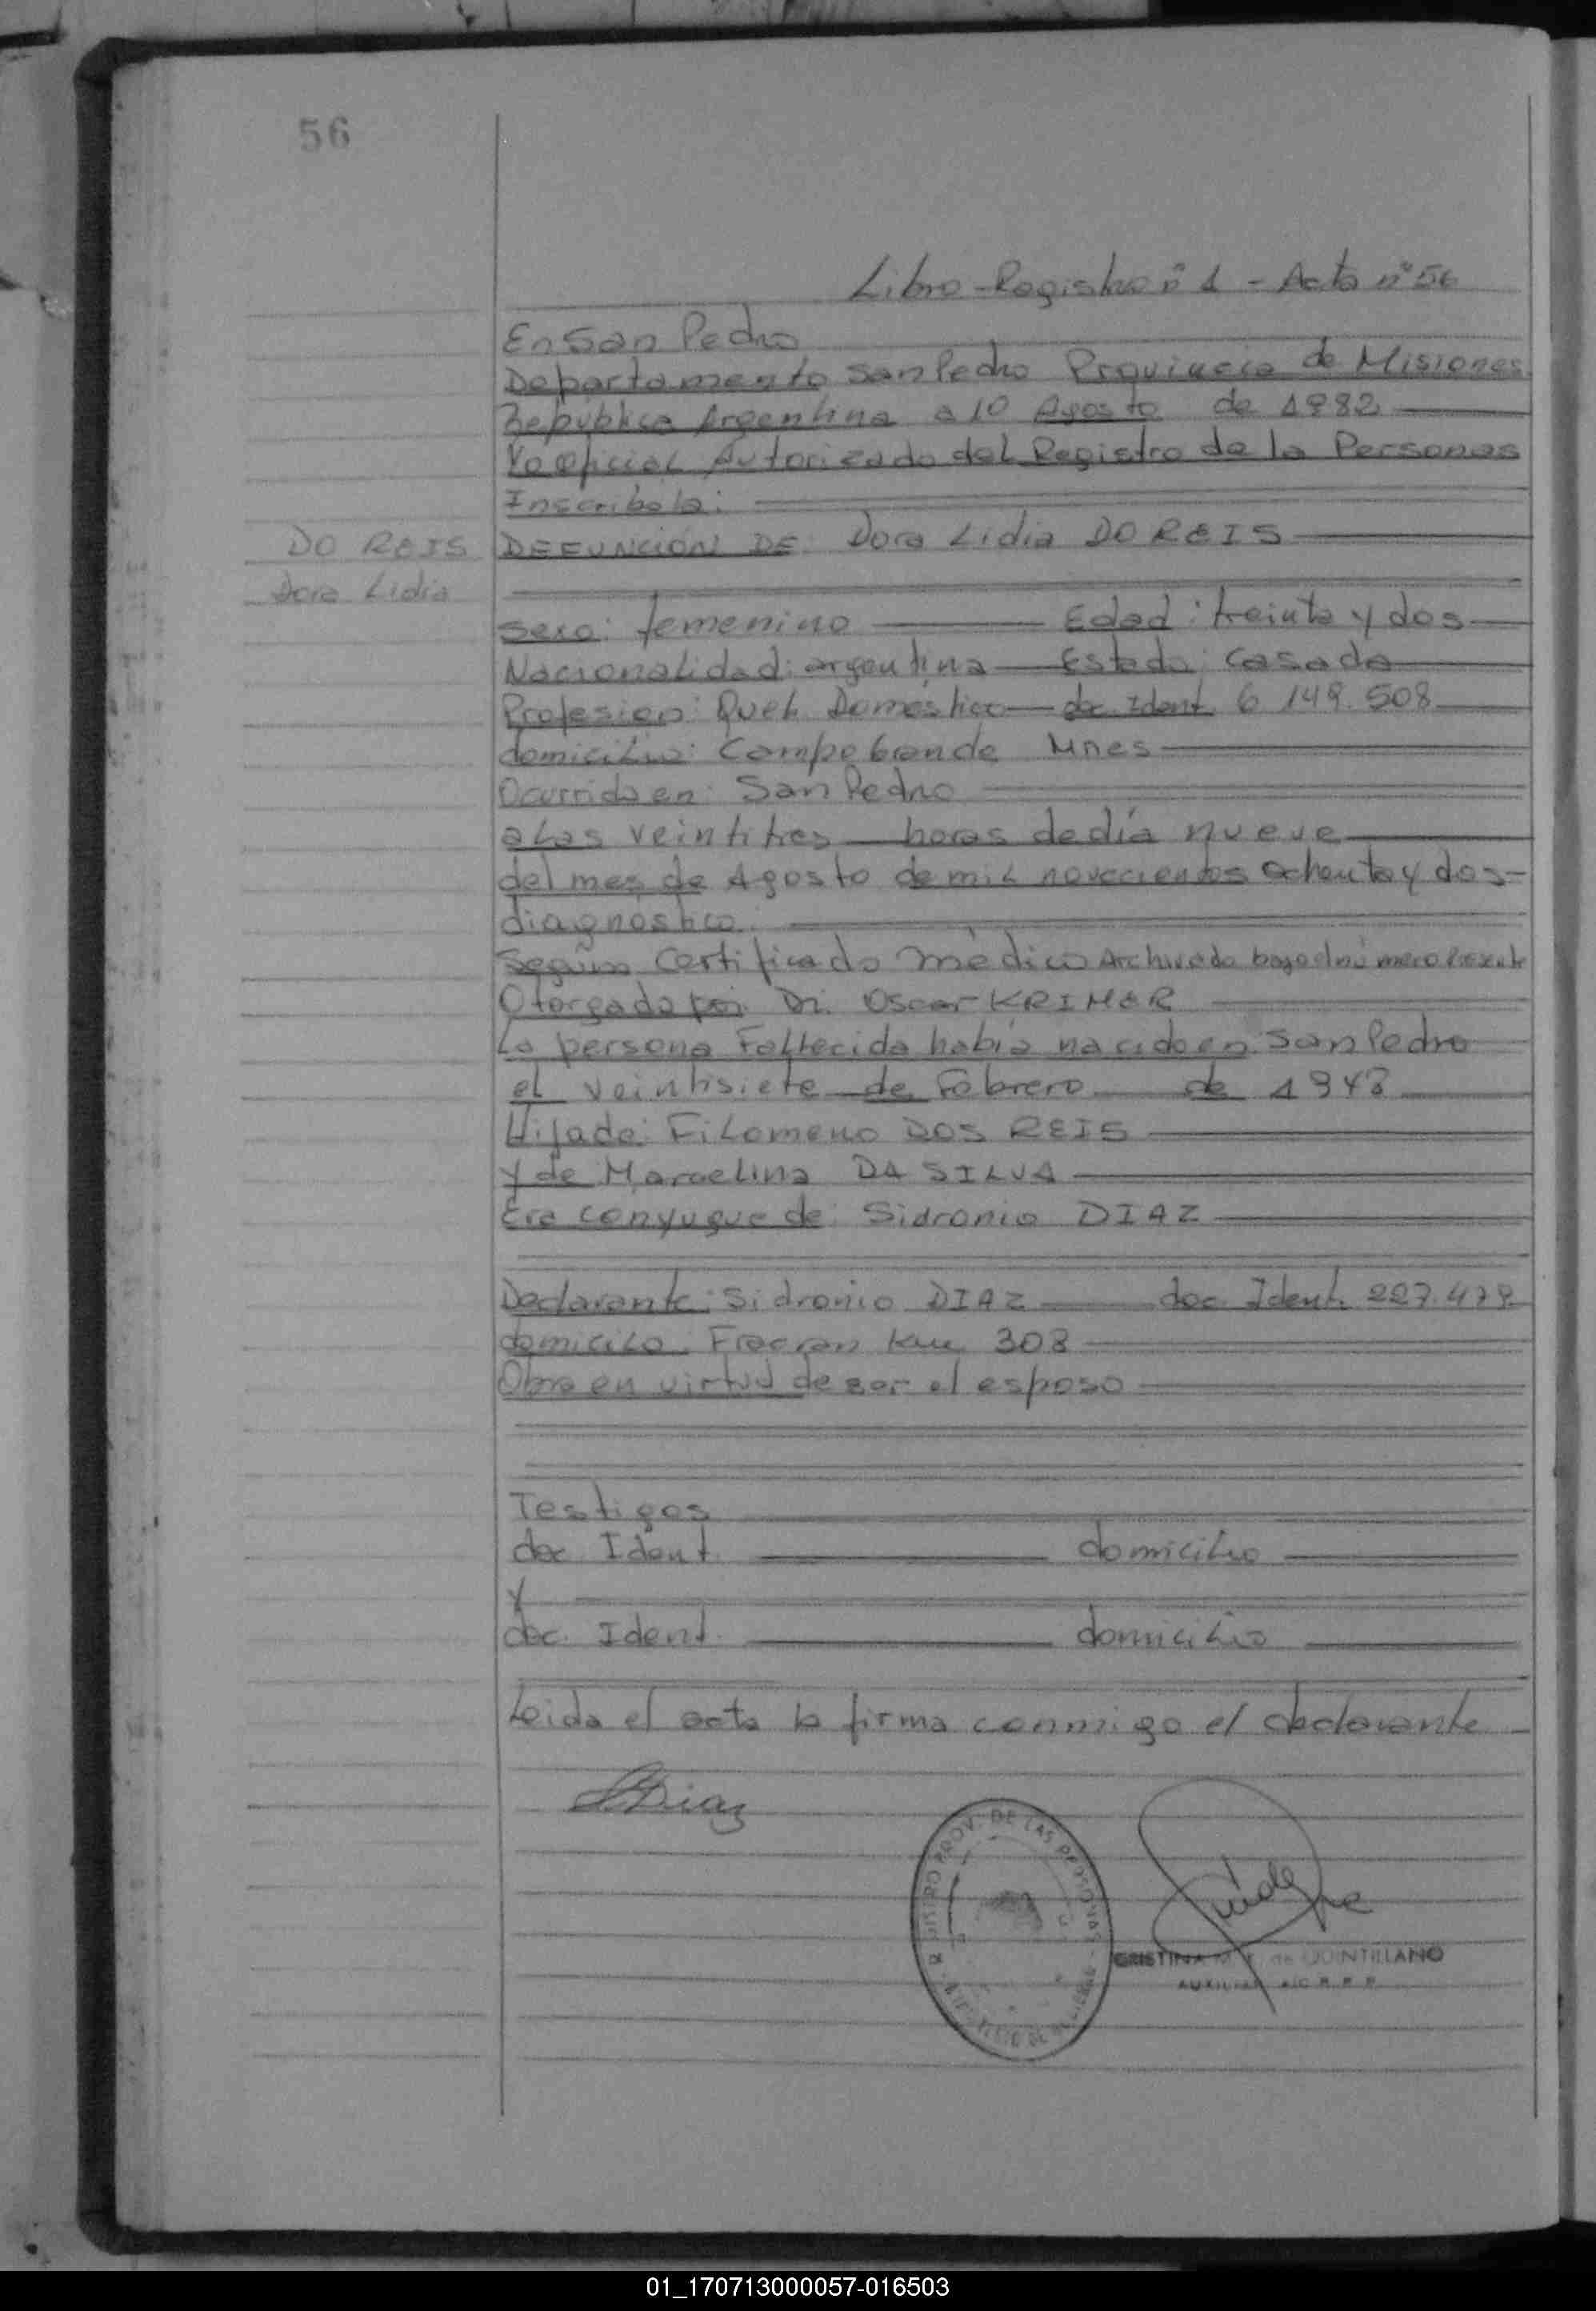 56
Libro-Registro nº 1 - Acta nº 56
En San Pedro
Departamento San Pedro Provincia de Misiones
Republica Argentina a 10 Agosto de 1982
Yo oficial Autorizado del Registro de la Personas
Inscribo la:
DO REIS DEFUNCIÓN DE: Dora Lidia DO REIS
Dora Lidia
Sexo: femenino Edad: treinta y dos
Nacionalidad: argentina Estado: Casada
Profesion: Queh. Doméstico doc. Ident. 6 149.508
domicilio: Campo Grande Mnes
Ocurrida en: San Pedro
a las veintitres horas de día nueve
del mes de Agosto de mil novecientos ochenta y dos
diagnostico:
Según Certificado médico Archivado bajo el número
Otorgado por Dr. Oscar KRIMER
La persona Fallecida había nacido en San Pedro
el veintisiete de Febrero de
Hija de: Filomeno DOS REIS
y de Marcelina DA SILVA
Era conyugue de: Sidronio DIAZ
Declarante: Sidronio DIAZ doc. Ident. 227.479
domicilo: Fracran Km 308
Obra en virtud de ser el esposo
Testigos
doc. Ident. domicilio
y
doc. Ident. domicilio
Leida el acta la firma conmigo el declarante
Diaz
REGISTRO PROV. DE LAS PERSONAS
CRISTINA M. de QUINTILLANO
AUXILIAR
01_170713000057-016503